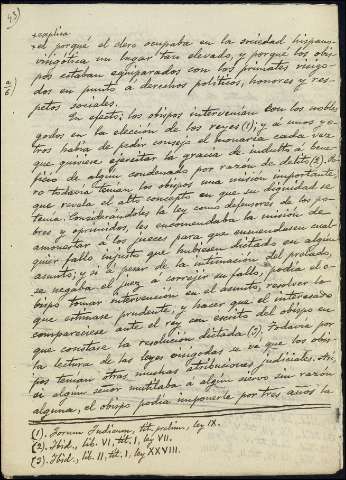 43)
se explica
el porqué el clero ocupaba en la sociedad hispano-
visigótica un lugar tan elevado, y porqué los obis-
pos estaban equiparados con los primates visigo-
dos en punto a derechos políticos, honores y res-
petos sociales.
En efecto: los obispos intervenían con los nobles
godos en la elección de los reyes (1); y á unos y o-
tros había de pedir consejo el monarca cada vez
que quisiere ejercitar la gracia de indulto á bene-
ficio de algún condenado por razón de delito (2). Pe-
ro todavía tenían los obispos una misión importante,
que revela el alto concepto en que su dignidad se
tenía. Considerándoles la ley como defensores de los po-
bres y oprimidos, les encomendaba la misión de
amonestar á los jueces para que enmendasen cual-
quier fallo injusto que hubiesen dictado en algún
asunto; y si á pesar de la intimación del prelado,
se negaba el juez a correjir su fallo, podía el o-
bispo tomar intervención en el asunto, resolver lo
que estimare prudente, y hacer que el interesado
compareciese ante el rey, con escrito del obispo en
que constase la resolución dictada (3). Todavía por
la lectura de las leyes visigodas se vé que los obis-
pos tenían otras muchas atribuciones judiciales.
si algún señor mutilaba á algún siervo sin razón
alguna, el obispo podía imponerle por tres años la
(1). Forum Judicum, tít. prelim., ley IX.
(2). Ibid., lib. VI, tít. I, ley VII.
(3). Ibid., lib. II, tít. I, ley XXVIII.